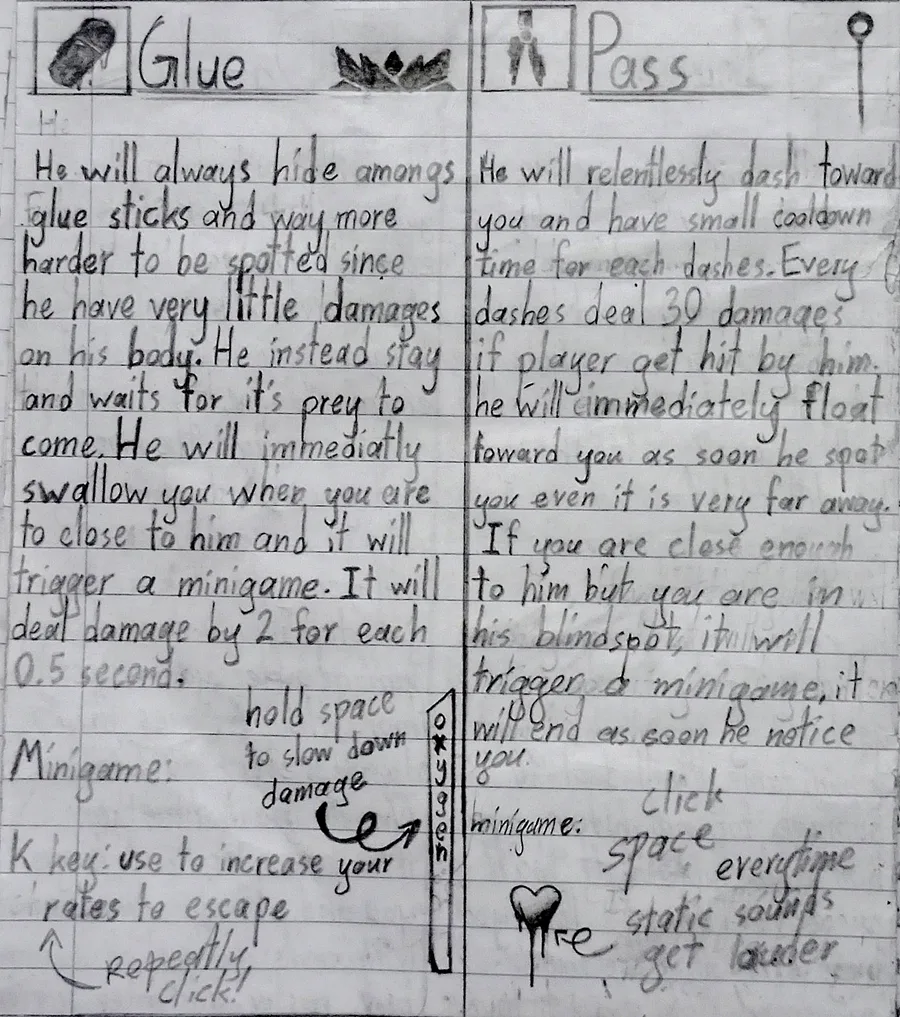 Glue
He will always hide amongs
glue sticks and way more
harder to be spotted since
he have very little damages
on his body. He instead stay
and waits for it's prey to
come. He will immediatly
swallow you when you are
to close to him and it will
trigger a minigame. It will
deal damage by 2 for each
0.5 second.
hold space
to slow down
damage
oxygen
Minigame:
K key: use to increase your
rates to escape
Repeatly
click!
Pass
He will relentlessly dash toward
you and have small cooldown
time for each dashes. Every
dashes deal 30 damages
if player get hit by him.
he will immediately float
toward you as soon he spot
you even it is very far away.
If you are close enough
to him but you are in
his blindspot, it will
trigger a minigame, it
will end as soon he notice
you.
minigame:
click
space everytime
static sounds
get louder